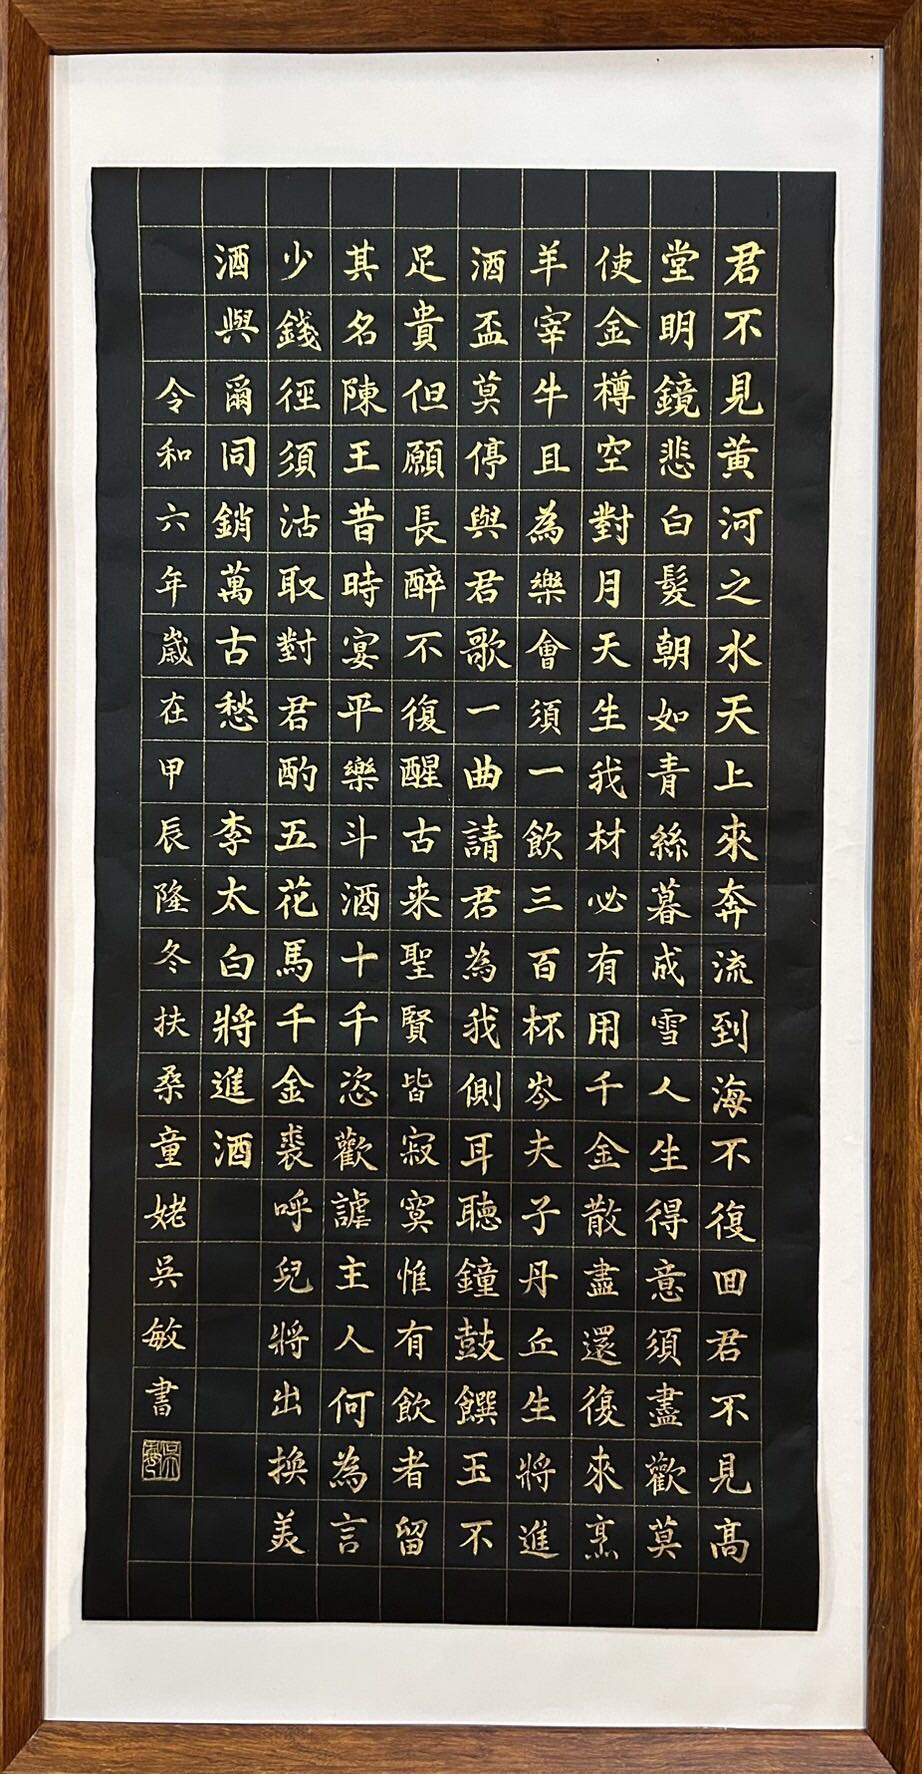 君不見黃河之水天上來奔流到海不復回君不見高
堂明鏡悲白髮朝如青絲暮成雪人生得意須盡歡莫
使金樽空對月天生我材必有用千金散盡還復來烹
羊宰牛且為樂會須一飲三百杯岑夫子丹丘生將進
酒盃莫停與君歌一曲請君為我側耳聽鐘鼓饌玉不
足貴但願長醉不復醒古来聖賢皆寂寞惟有飲者留
其名陳王昔時宴平樂斗酒十千恣歡謔主人何為言
少錢徑須沽取對君酌五花馬千金裘呼兒將出換美
酒與爾同銷萬古愁 李太白將進酒
令和六年歲在甲辰隆冬扶桑童姥吳敏書
吳敏